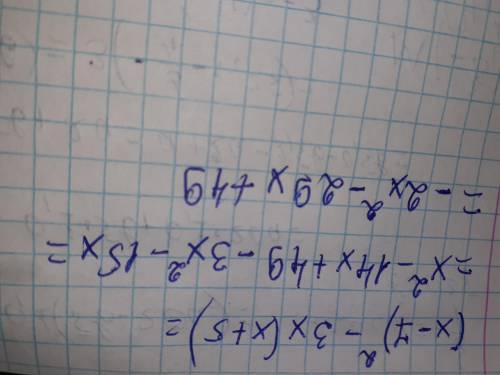 (x-7)² - 3x(x+5)=
= x² - 14x + 49 - 3x² - 15x =
= -2x² - 29x + 49